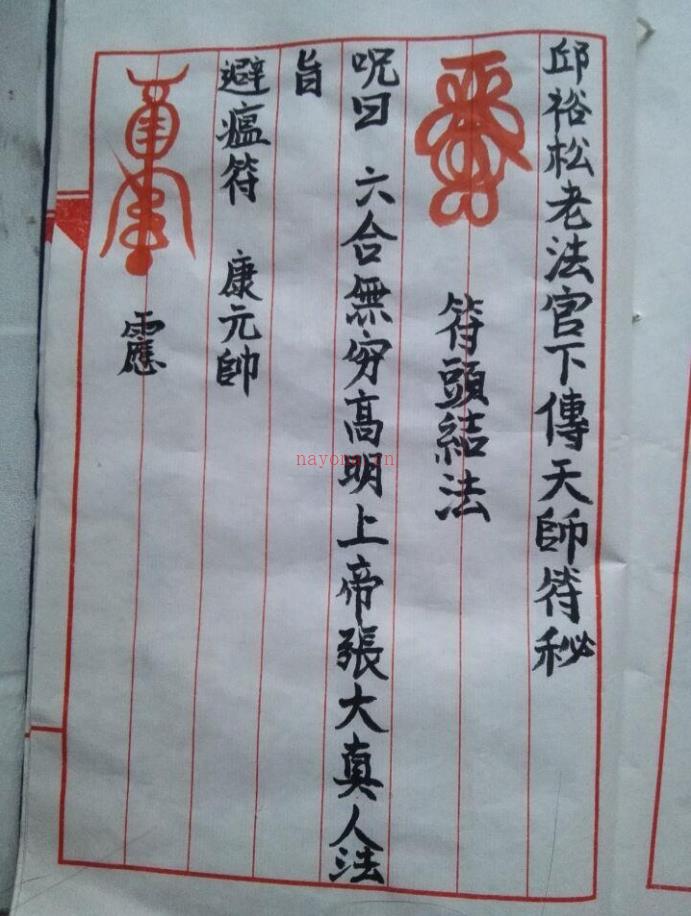 邱裕松老法官下傳天師符秘
符頭結法
呪曰 六合無穷高明上帝張大真人法
旨
避瘟符 康元帥
靨